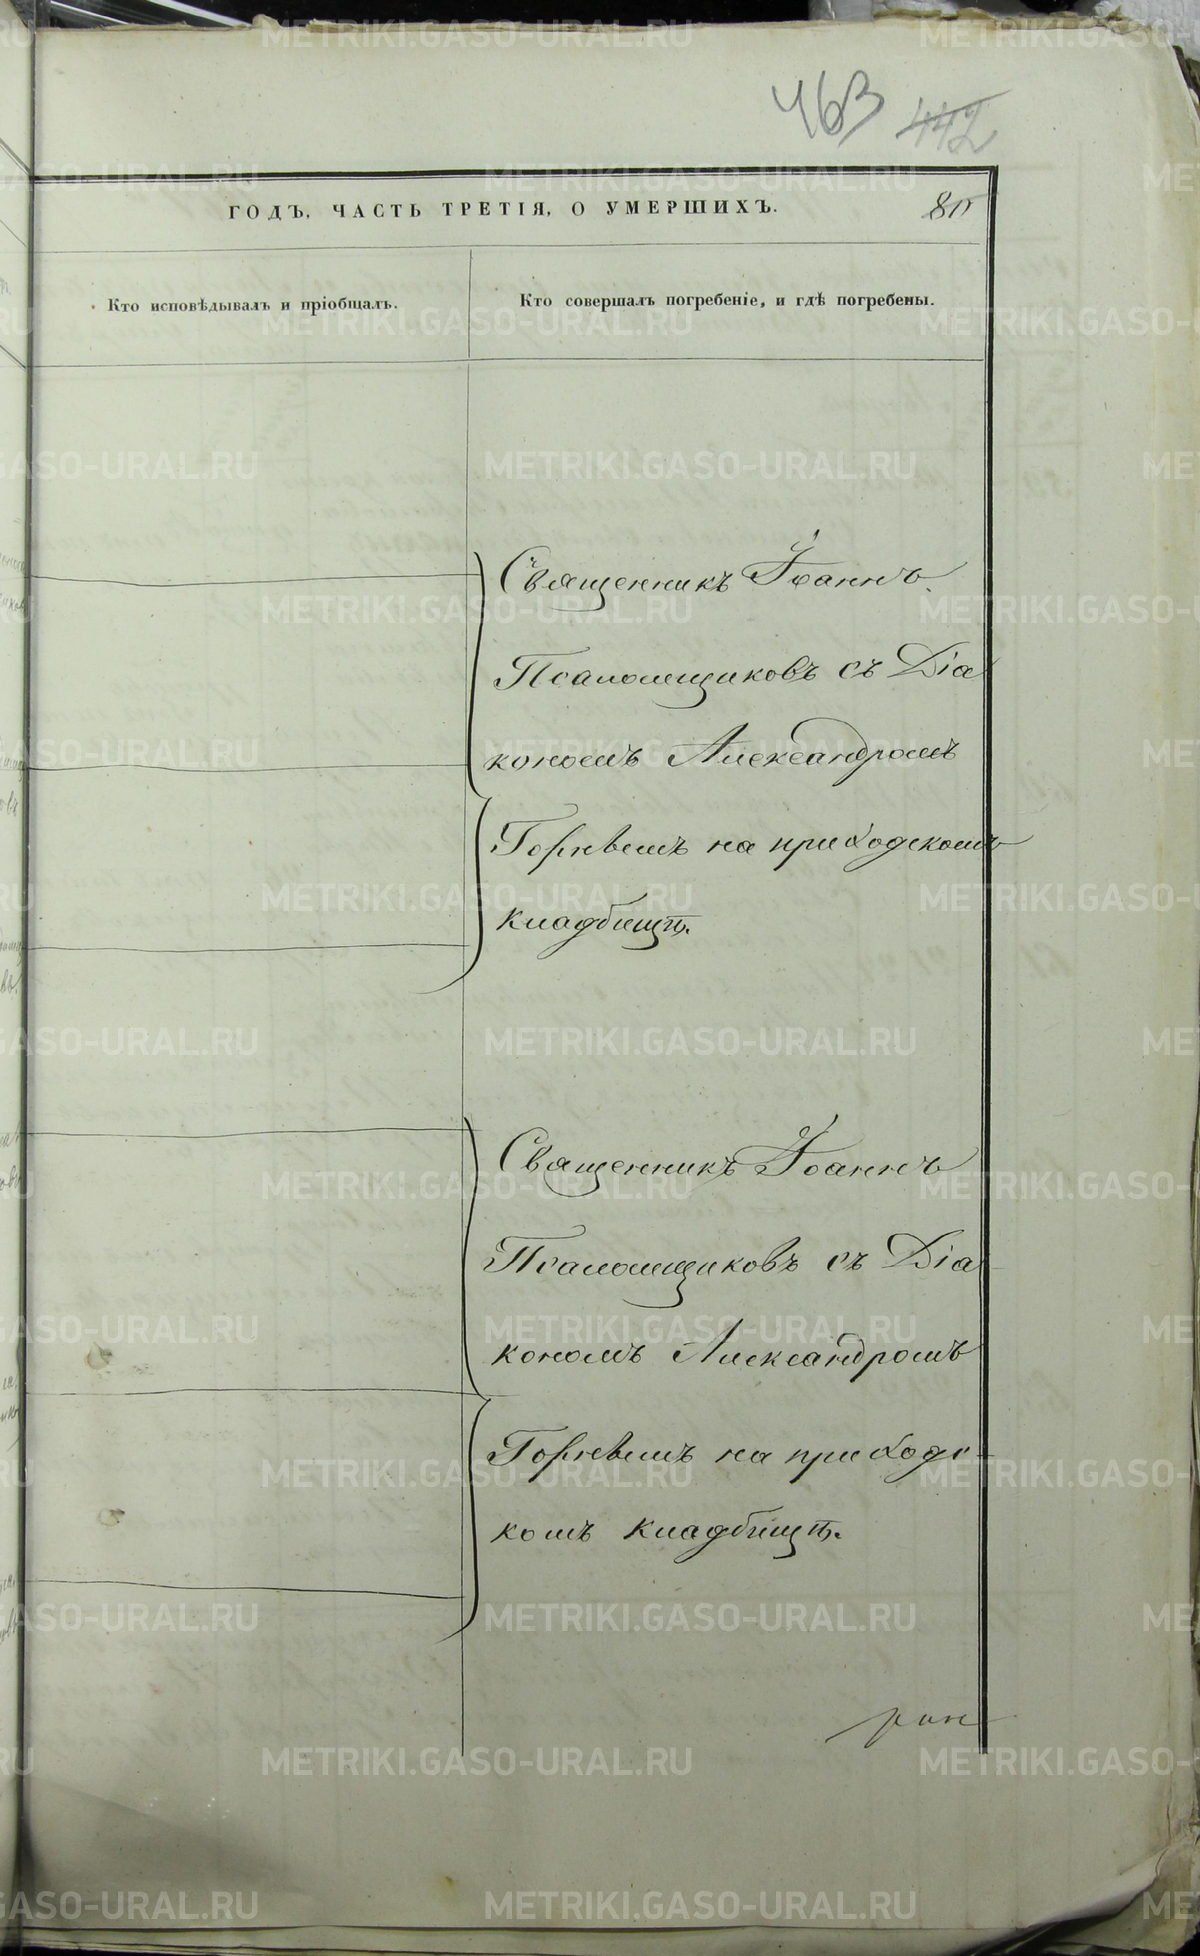 463 442
ГОДЪ, ЧАСТЬ ТРЕТІЯ, О УМЕРШИХЪ. 80
Кто исповѣдывалъ и пріобщалъ. Кто совершалъ погребеніе, и гдѣ погребены.
Священникъ Іоаннъ
Псаломщиковъ съ Діа
кономъ Александромъ
на приходскомъ
кладбищѣ.
Священникъ Іоаннъ
Псаломщиковъ съ Діа
кономъ Александромъ
на приходс-
комъ кладбищѣ.
METRIKI.GASO-URAL.RU